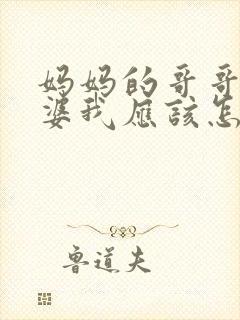 妈妈的哥哥
婆我应该怎
鲁道夫